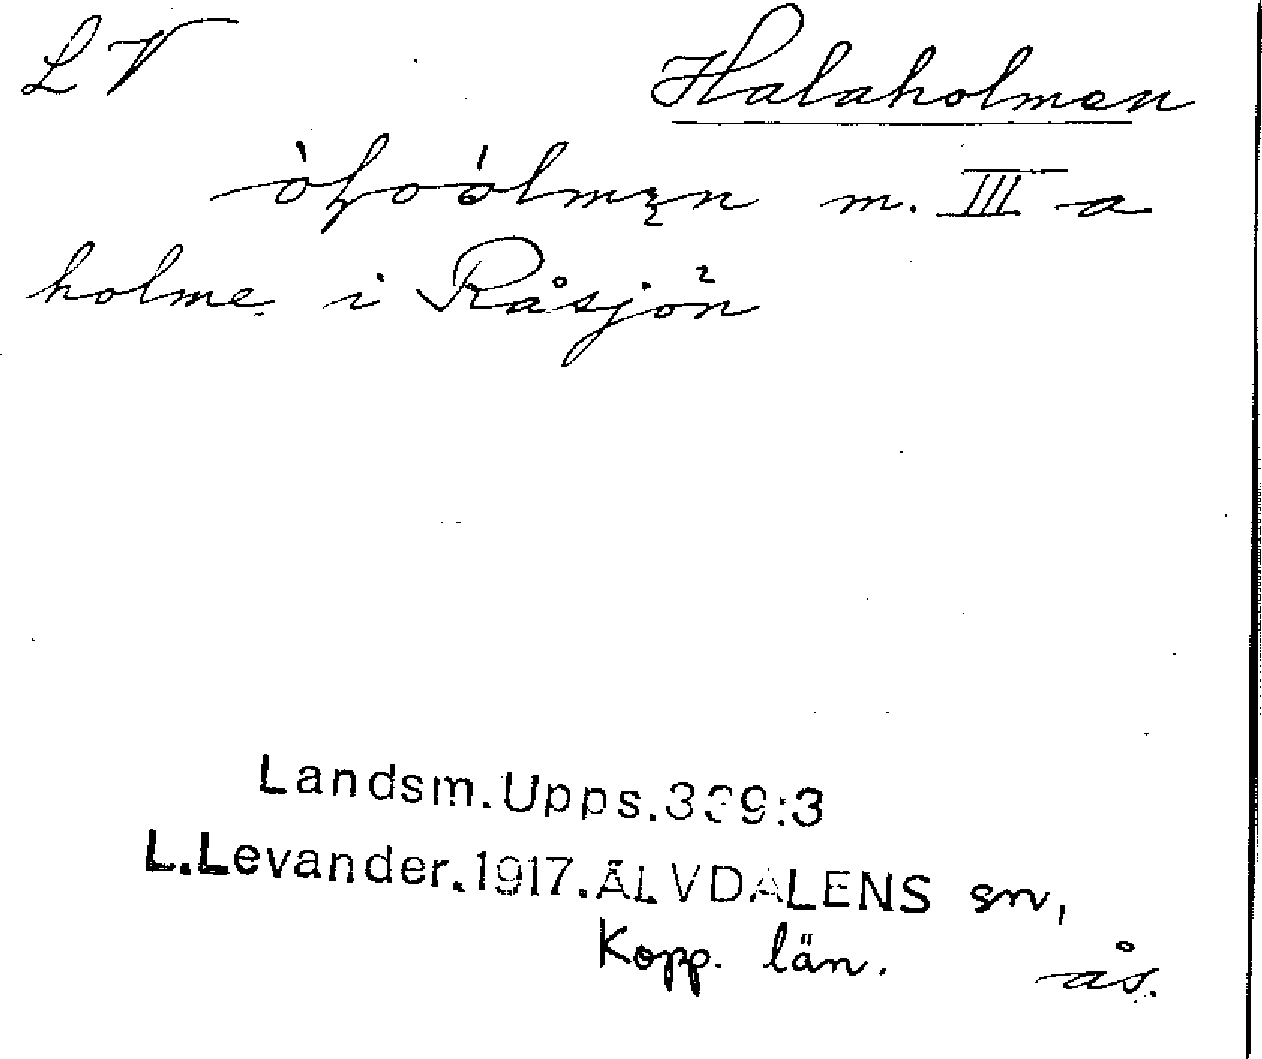 L V Halaholmen
m. III a
holme i Råsjön
Landsm.Upps.339:3
L.Levander.1917.ÄLVDALENS sn,
Kopp. län. ås.